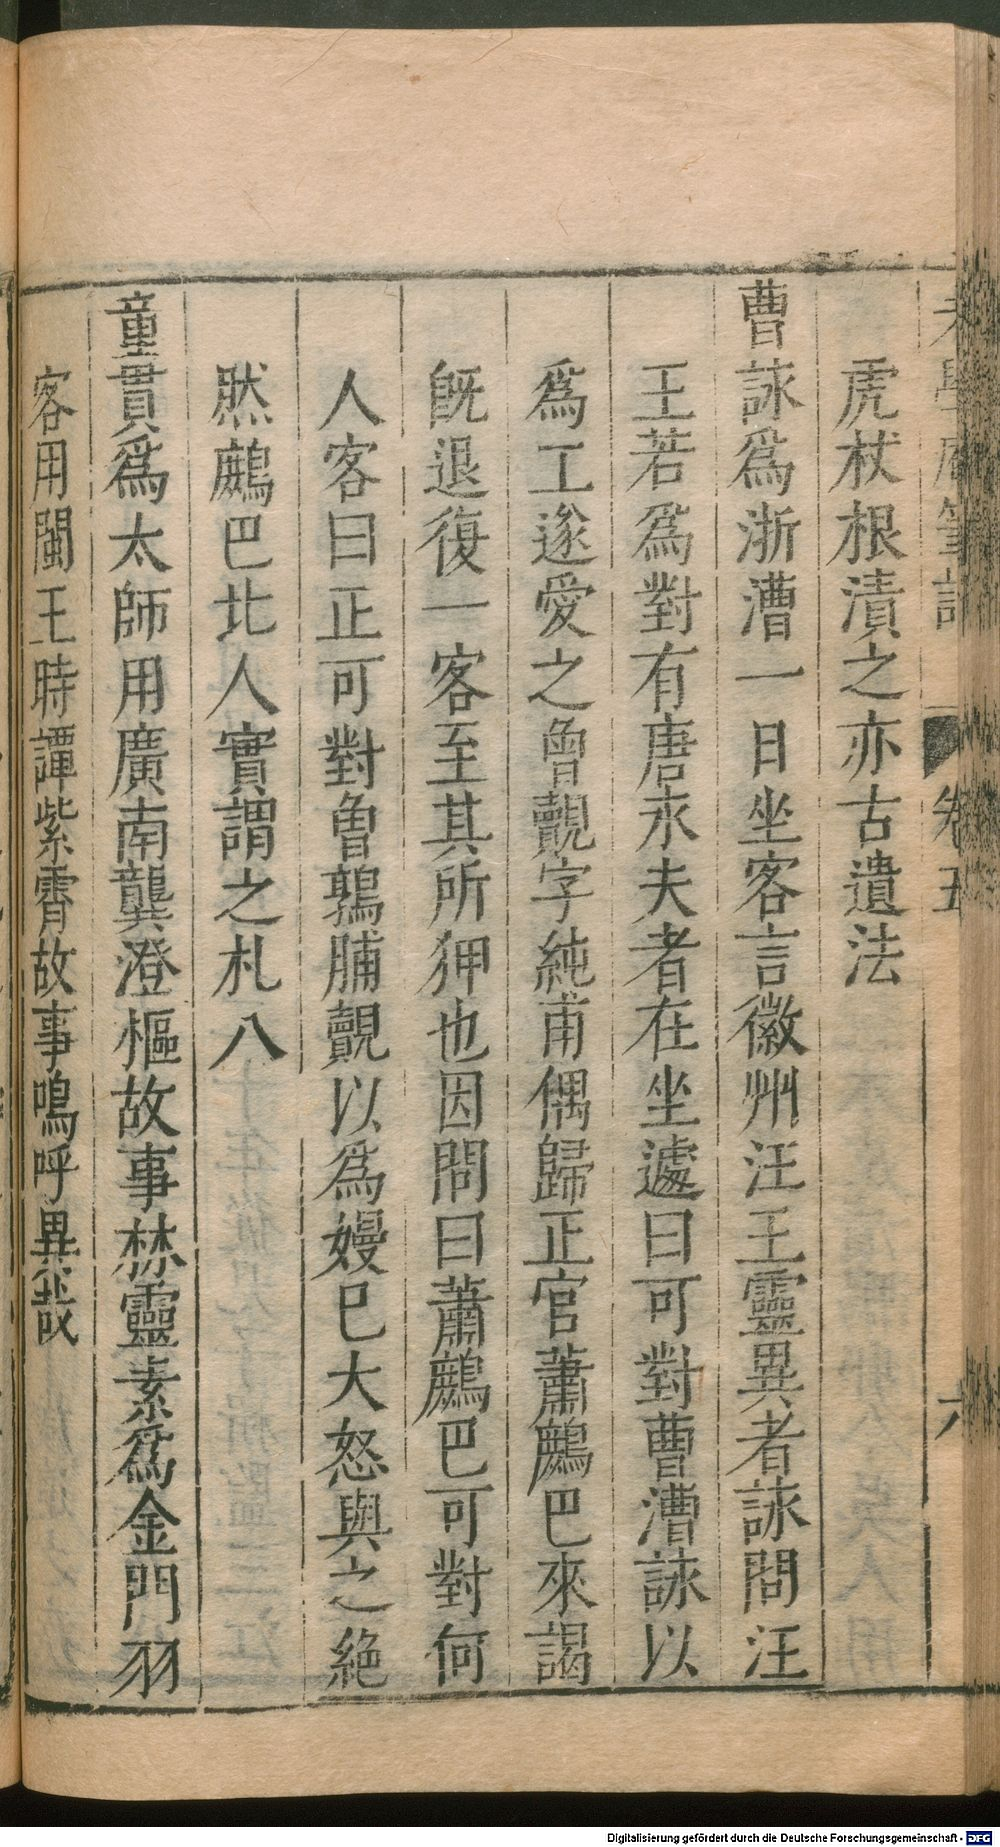 老學庵筆記 卷五 六
虎杖根漬之亦古遺法
曹詠爲浙漕一日坐客言徽州汪王靈異者詠問汪
王若爲對有唐永夫者在坐遽曰可對曹漕詠以
爲工遂愛之曾覿字純甫偶歸正官蕭鷓巴來謁
旣退復一客至其所狎也因問曰蕭鷓巴可對何
人客曰正可對曾鶉脯覿以爲嫚已大怒與之絶
然鷓巴北人實謂之札八
童貫爲太師用廣南龔澄樞故事林靈素爲金門羽
客用閩王時譚紫霄故事嗚呼異哉
Digitalisierung gefördert durch die Deutsche Forschungsgemeinschaft - DFG